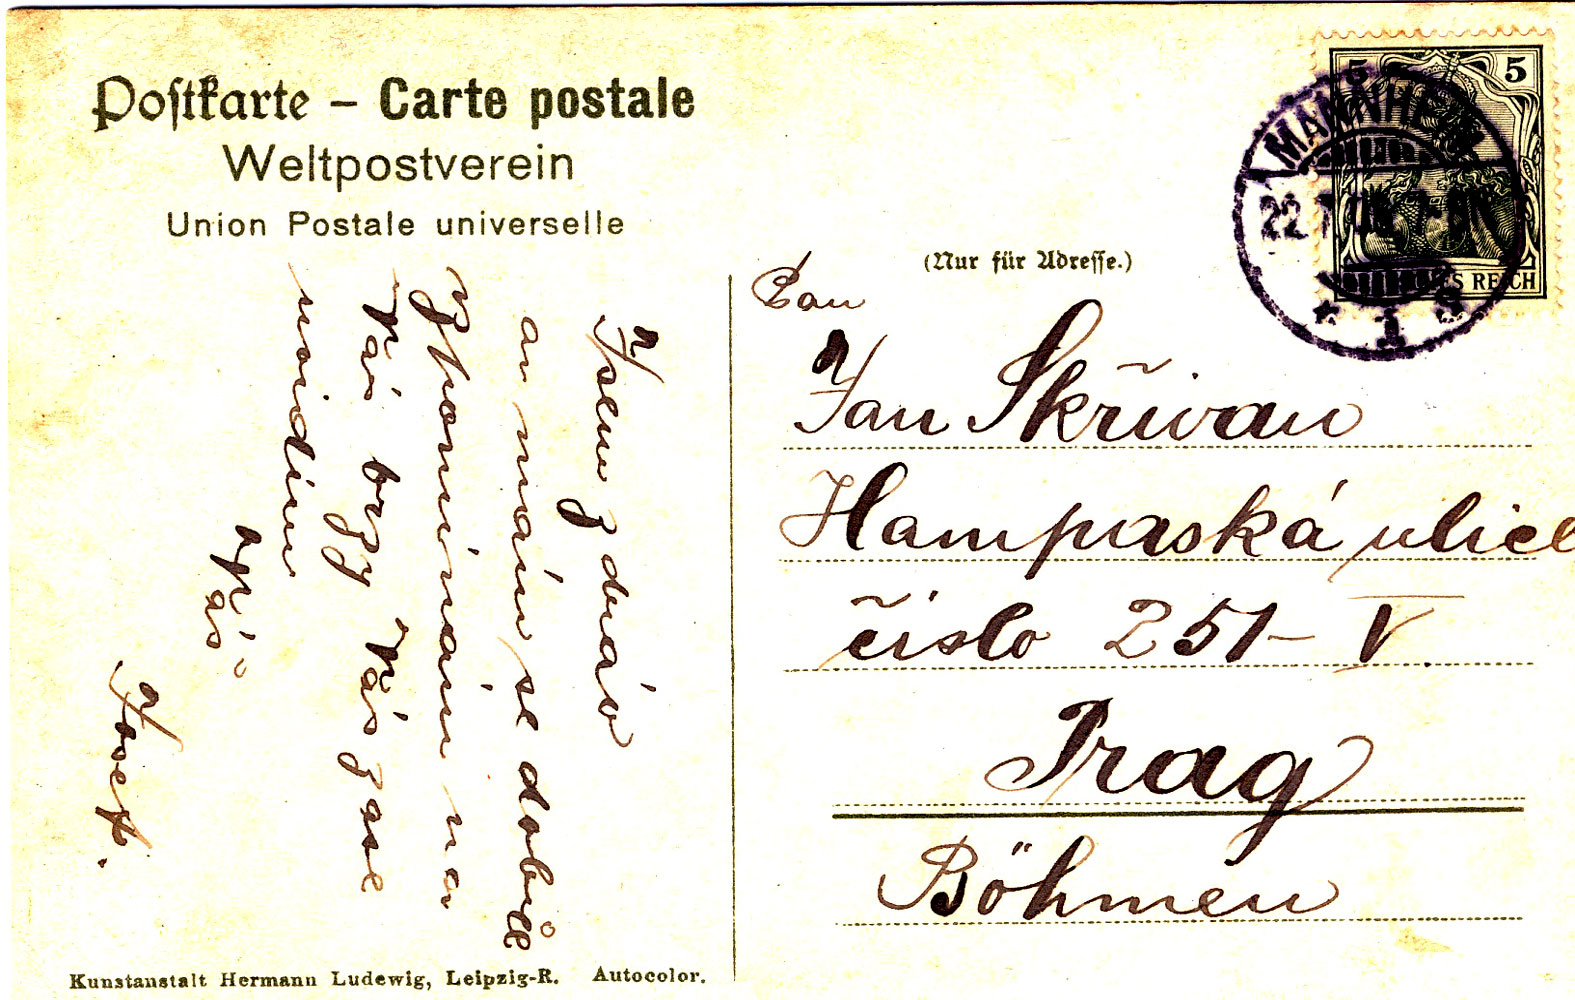 Postkarte – Carte postale
Weltpostverein
Union Postale universelle
(Nur für Adresse.)
5
5
MANNHEIM
22.
* 1
REICH
Pan
Jan Skřivan
Hampaská ulice
číslo 251– V.
Prag
Böhmen
Jsem zdráv
a mám se dobře
Vzpomínám na
Vás brzy Vás zase
uvidím
Váš
Josef.
Kunstanstalt Hermann Ludewig, Leipzig-R. Autocolor.